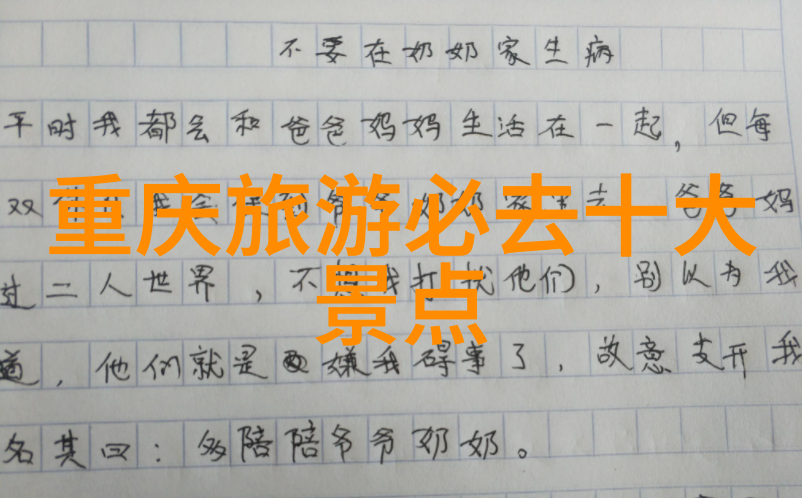 不要在奶奶家生病
平时我都会和爸爸妈妈生活在一起，但每
双 我会 爷爷奶奶 去。爸爸妈
重庆旅游必去十大
过二人世界，不想我打扰他们，别以为我
景点
道，他们就是嫌我碍事了，故意支开我
名其曰：多陪陪爷爷奶奶。